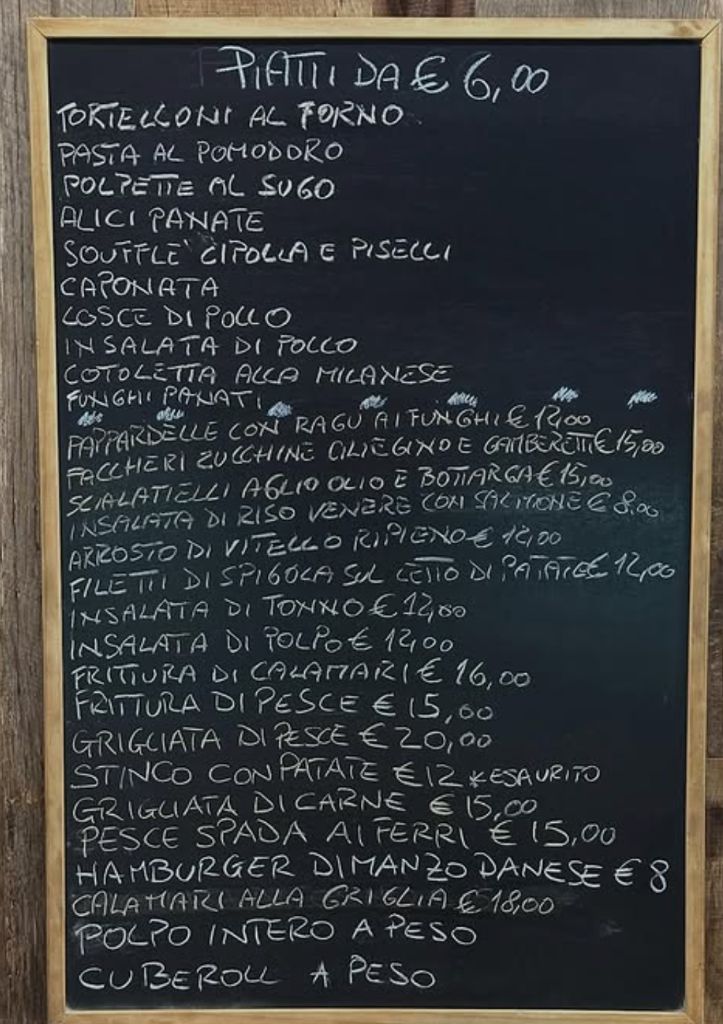 PIATTI DA € 6,00
TORTELLONI AL FORNO
PASTA AL POMODORO
POLPETTE AL SUGO
ALICI PANATE
SOUFFLE' CIPOLLA E PISELLI
CAPONATA
COSCE DI POLLO
INSALATA DI POLLO
COTOLETTA ALLA MILANESE
FUNGHI PANATI
PAPPARDELLE CON RAGU' AI FUNGHI € 12,00
PACCHERI ZUCCHINE CILIEGINO E GAMBERETTI € 15,00
SCIALATIELLI AGLIO OLIO E BOTTARGA € 15,00
INSALATA DI RISO VENERE CON SALMONE € 8,00
ARROSTO DI VITELLO RIPIENO € 12,00
FILETTI DI SPIGOLA SUL LETTO DI PATATE € 12,00
INSALATA DI TONNO € 12,00
INSALATA DI POLPO € 12,00
FRITTURA DI CALAMARI € 16,00
FRITTURA DI PESCE € 15,00
GRIGLIATA DI PESCE € 20,00
STINCO CON PATATE € 12 *ESAURITO
GRIGLIATA DI CARNE € 15,00
PESCE SPADA AI FERRI € 15,00
HAMBURGER DI MANZO DANESE € 8
CALAMARI ALLA GRIGLIA € 18,00
POLPO INTERO A PESO
CUBEROLL A PESO